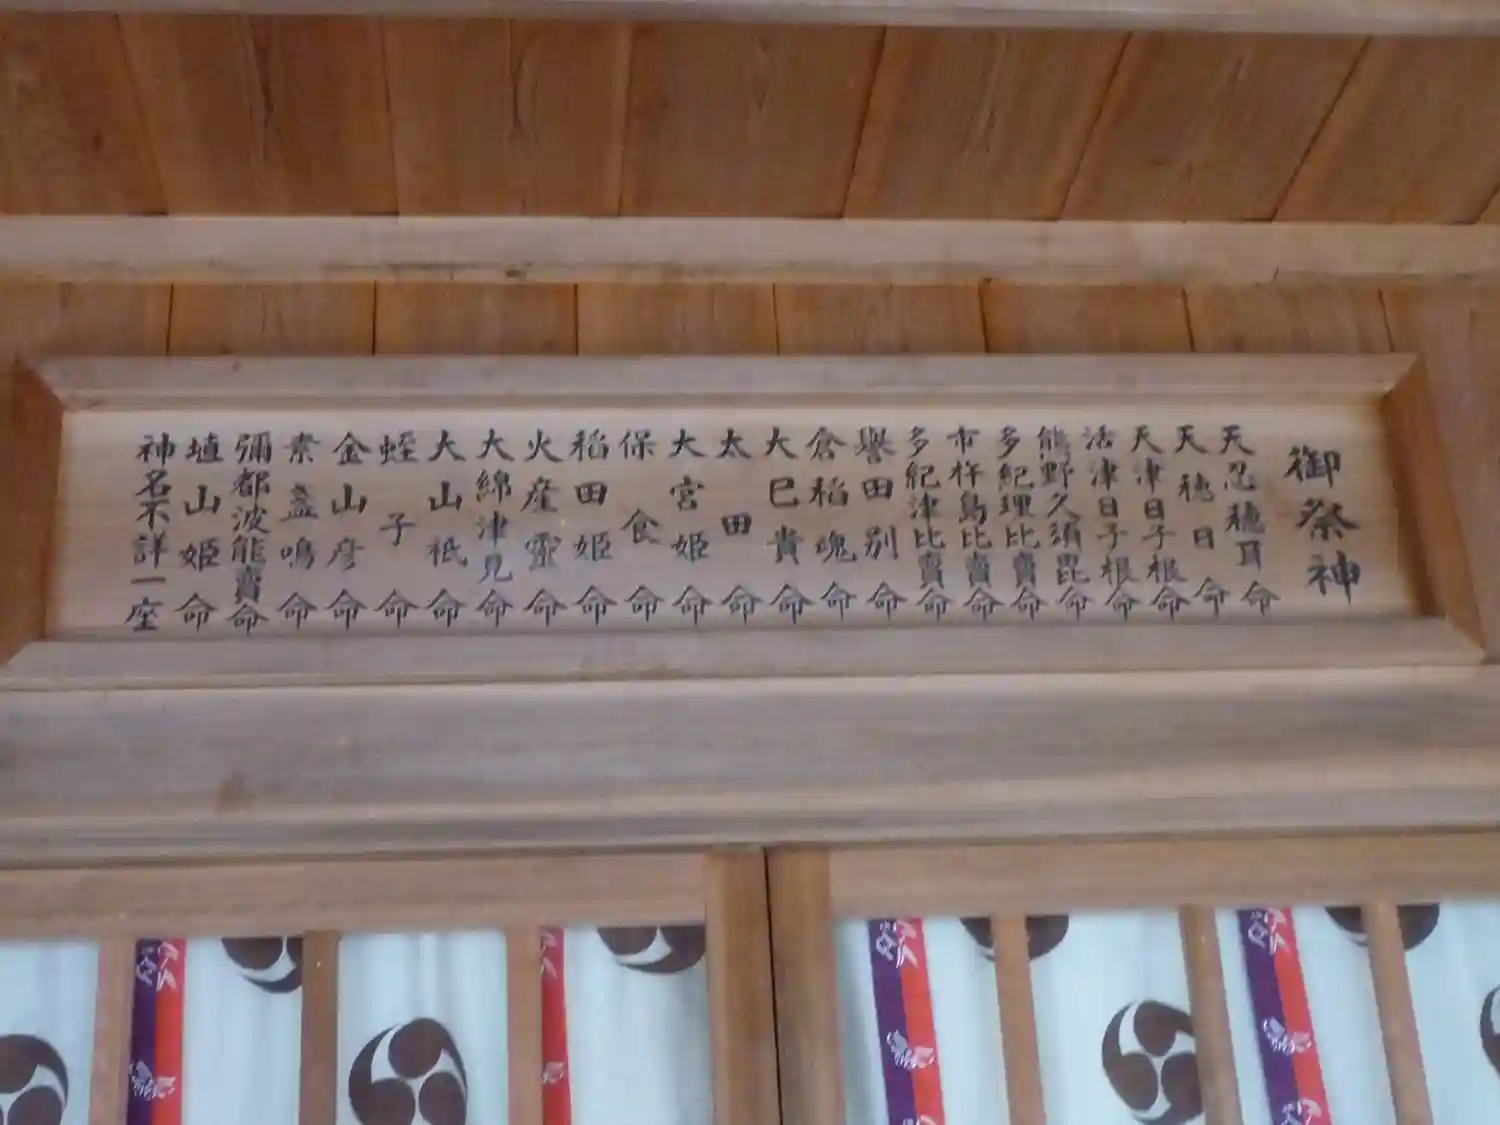 御祭神
天忍穂耳命
天穂日命
天津日子根命
活津日子根命
熊野久須毘命
多紀理比賣命
市杵島比賣命
多紀津比賣命
譽田別命
倉稲魂命
大巳貴命
太田命
大宮姫命
保食命
稲田姫命
火産靈命
大綿津見命
大山祗命
蛭子命
金山彦命
素盞嗚命
彌都波能賣命
埴山姫命
神名不詳一座